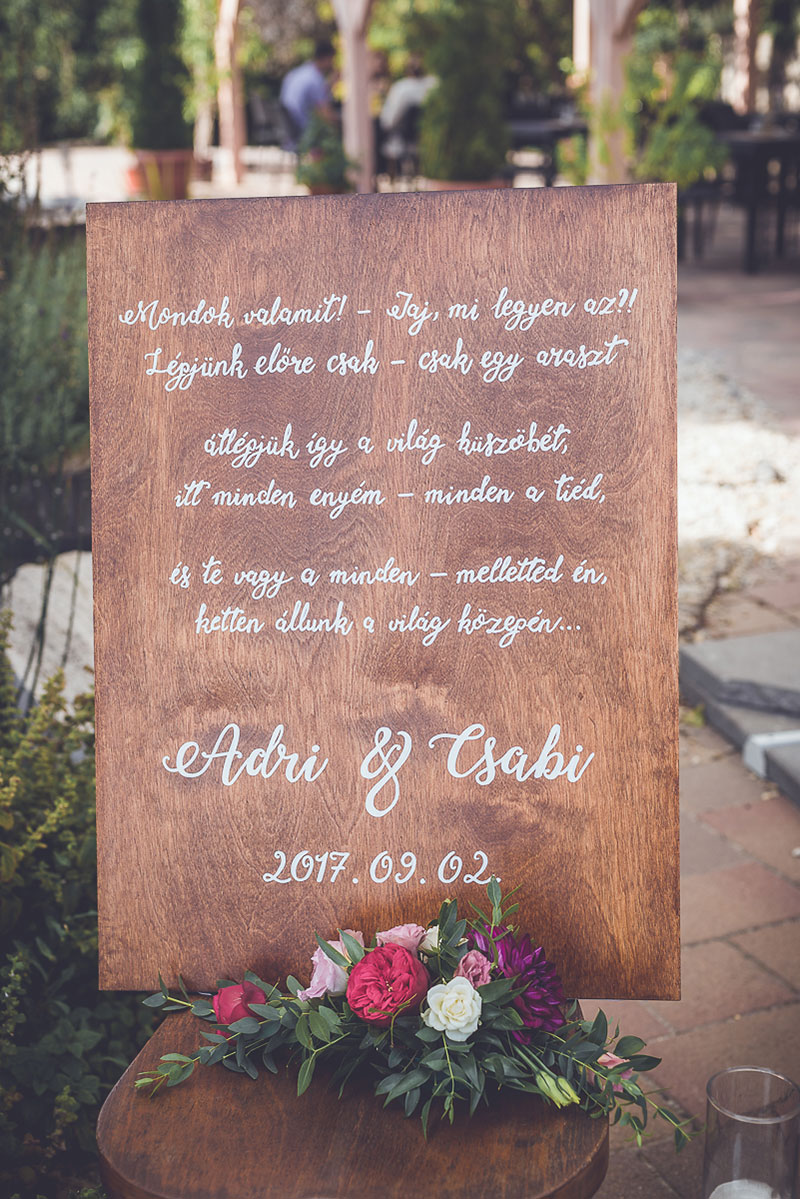 Mondok valamit! - Jaj, mi legyen az?!
Lépjünk előre csak - csak egy araszt
átlépjük így a világ küszöbét,
itt minden enyém - minden a tiéd,
és te vagy a minden - melletted én,
ketten állunk a világ közepén...
Adri & Csabi
2017. 09. 02.